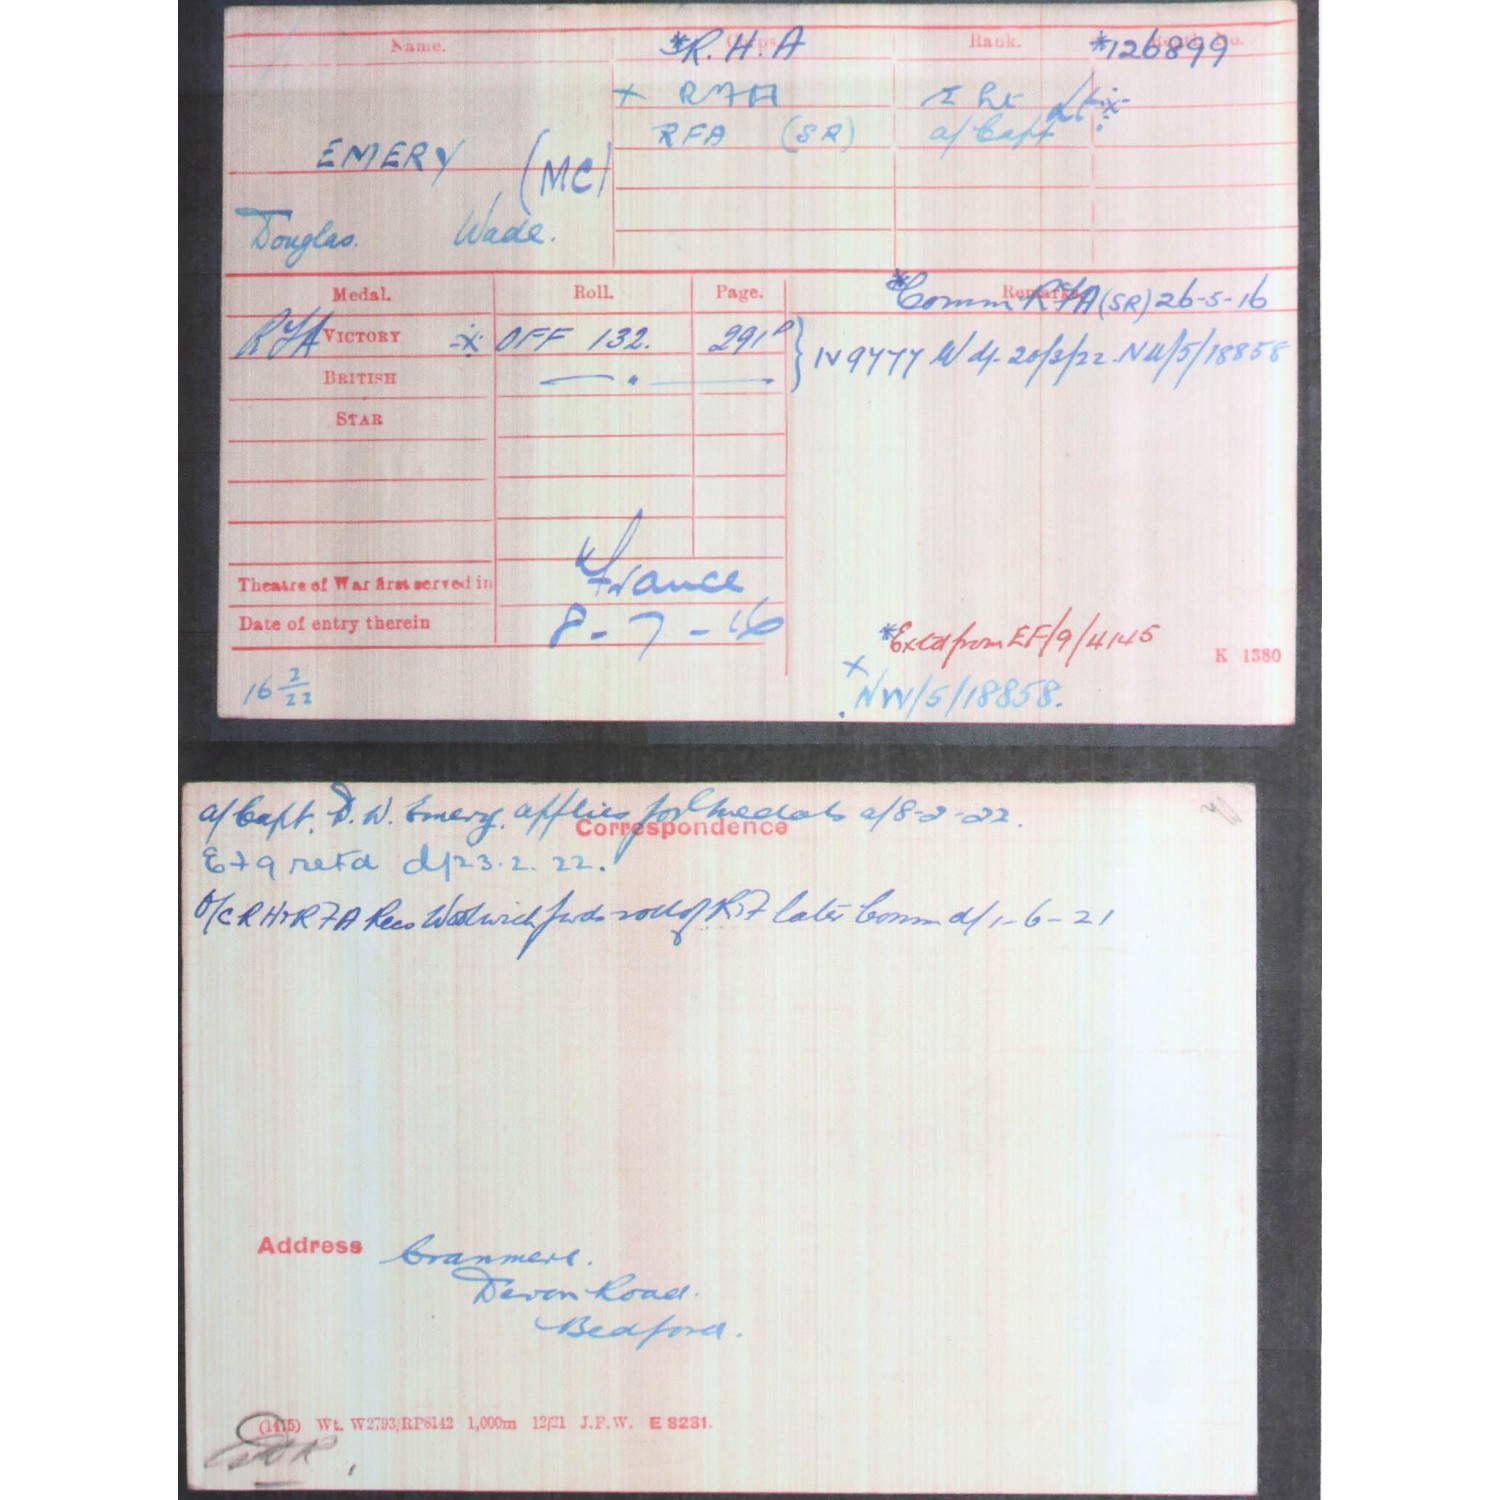 Name. Corps. Rank. Regtl. No.
*R.H.A *126899
x RFA 2 Lt
RFA (SR) a/Capt
EMERY (MC)
Douglas Wade.
Medal. Roll. Page. Remarks.
*Comm RFA (SR) 26-5-16
RFA VICTORY OFF 132. 291
BRITISH — " —
IV 9777 W d/- 20/3/22. NW/5/18858
STAR
Theatre of War first served in France
Date of entry therein 8-7-16
*Extd from EF/9/4145
K 1380
x NW/5/18858.
16 2/22
a/Capt. D. W. Emery. applies for medals d/8-2-22.
Correspondence
EF9 retd d/23.2.22.
O/C RH & RFA Recs Woolwich fwds roll of R&F later Comm d/1-6-21
Address Cranmere.
Devon Road.
Bedford.
(1475) Wt. W2793/RP6142 1,000m 12/21 J.P.W. E 8231.